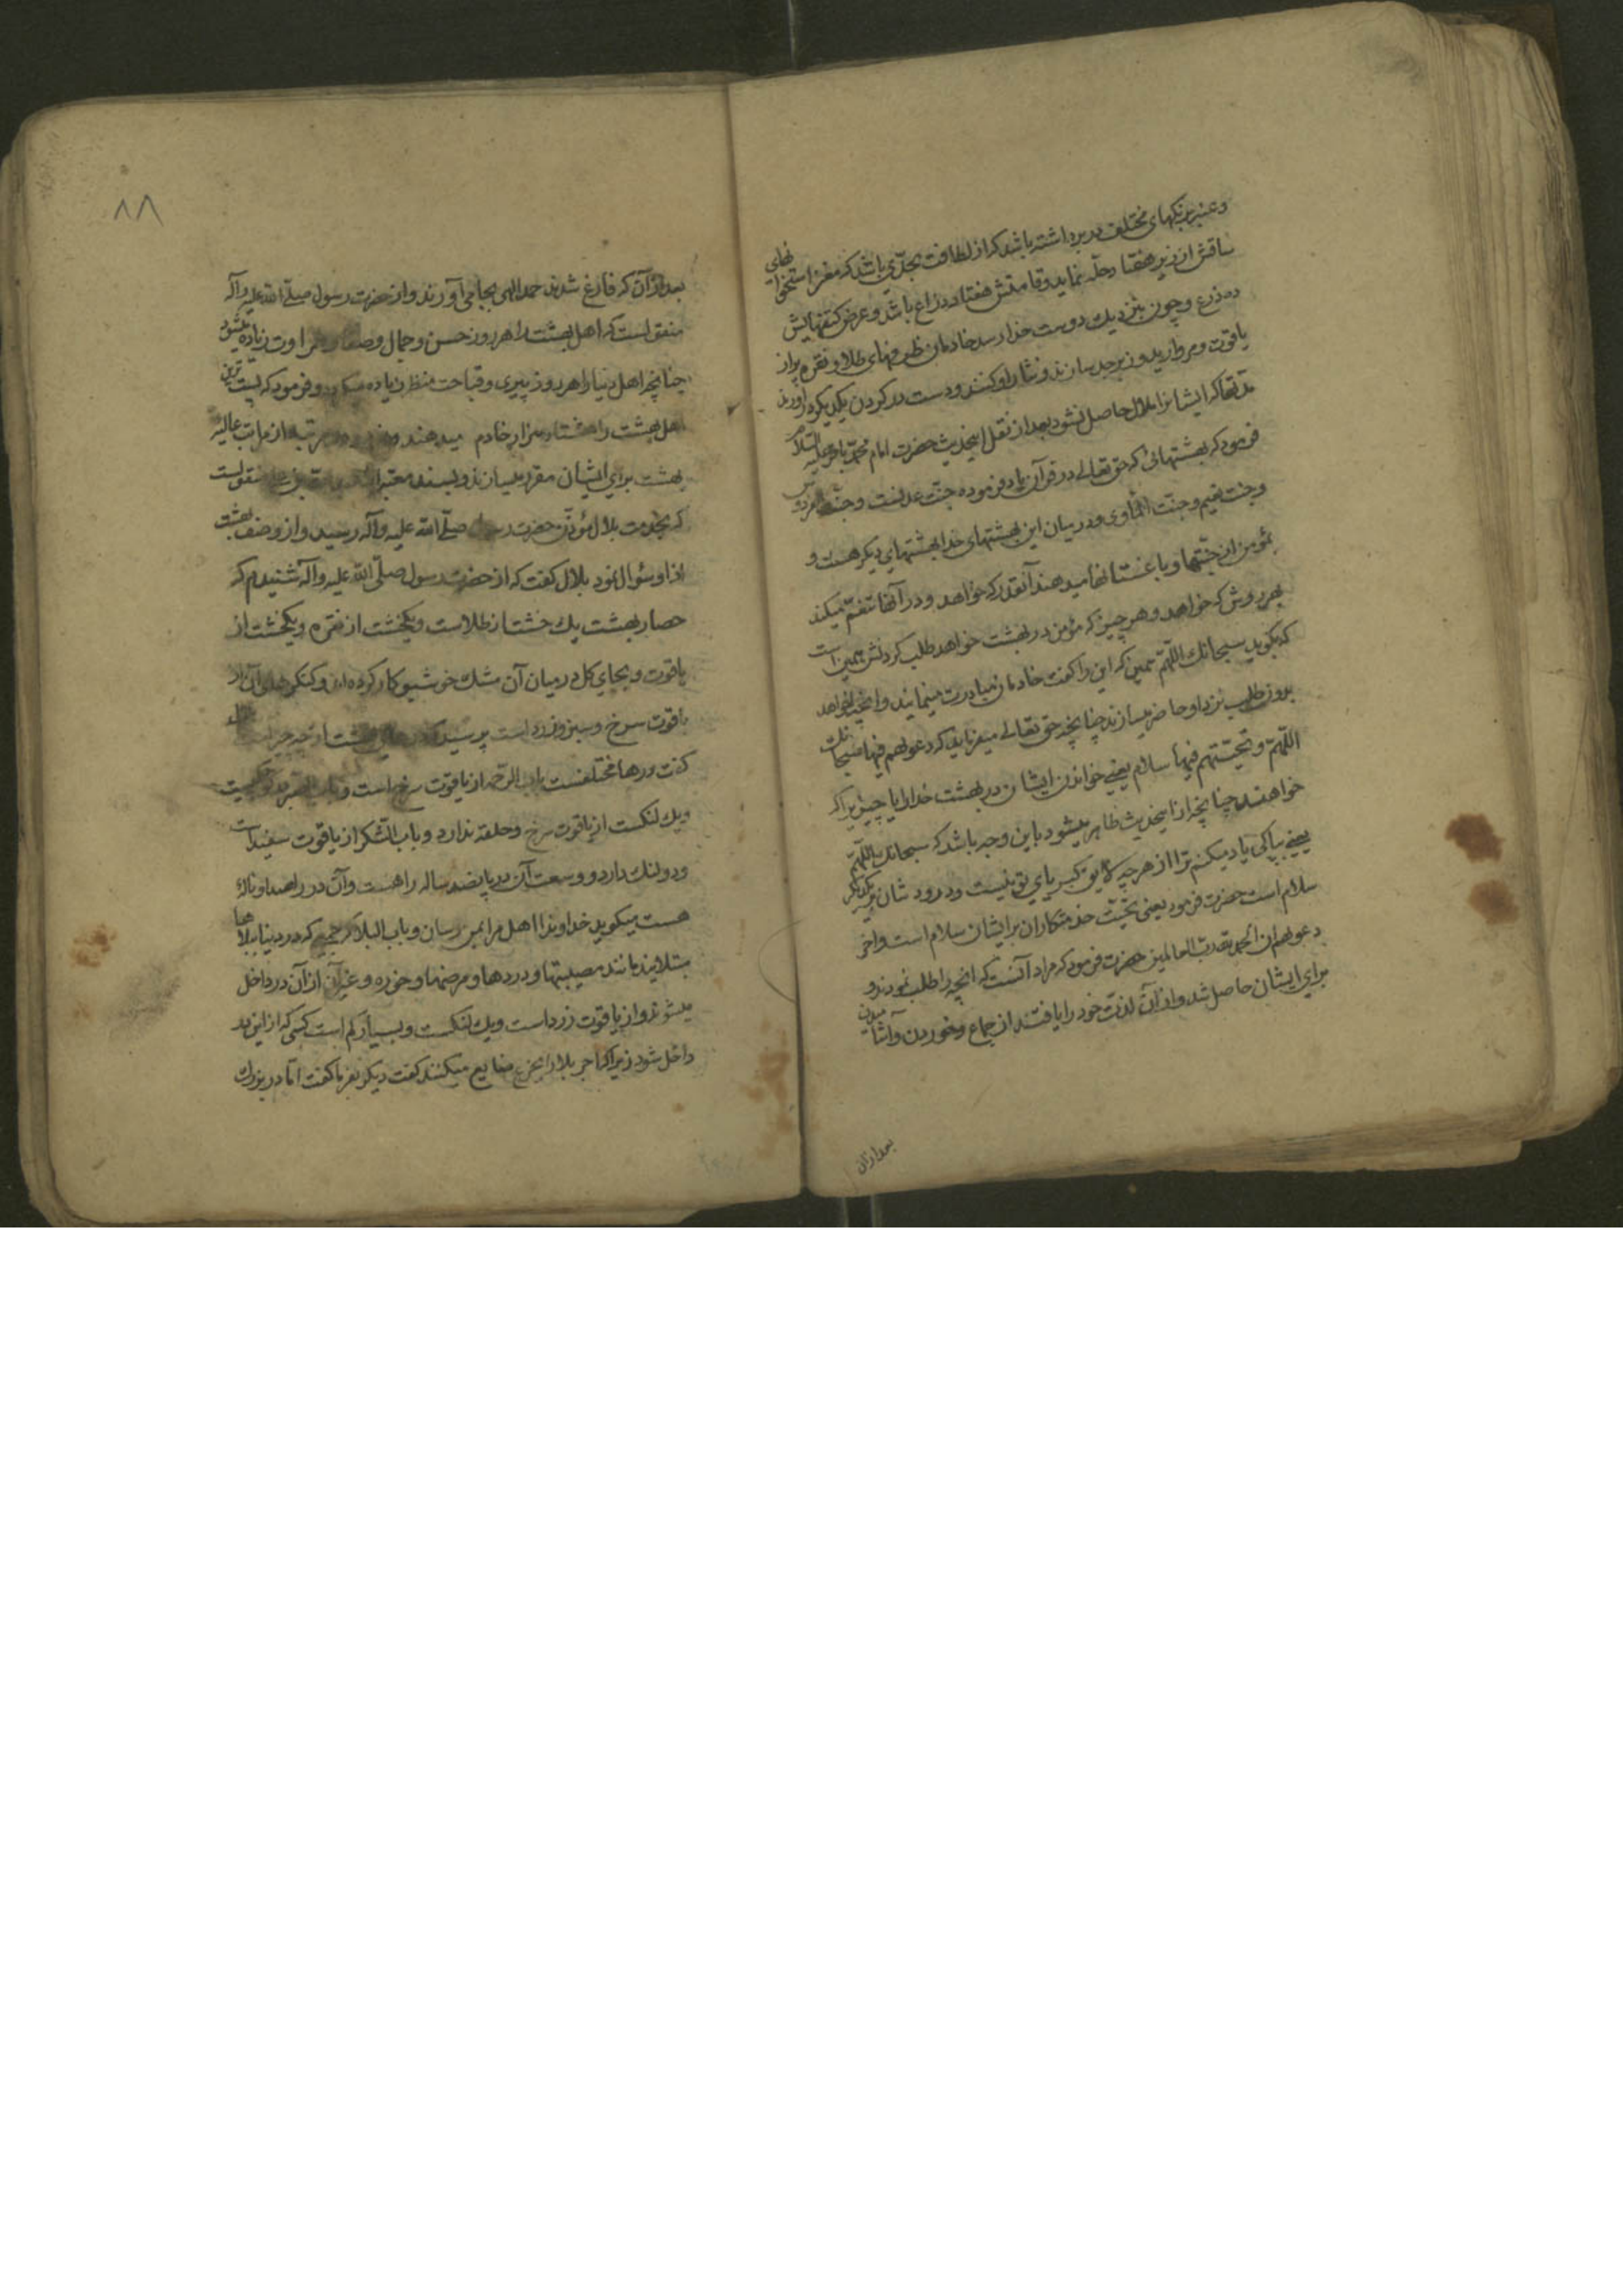 وعنبر برنکهای مختلف در بر داشته باشد که از لطافت بحدّی باشد که مغز استخوانهای
ساقش از زیر هفتاد حلّه نماید و قامتش هفتاد ذراع باشد و عرض کتفهایش
ده ذرع و چون بنزدیک دوست خدا رسد خادمان ظرفهای طلا و نقره پر از
یاقوت و مروارید و زبرجد سازند و نثار او کنند و دست در کردن یکدیکر در آورند
مدتها که ایشانرا ملال حاصل نشود بعد از نقل اینحدیث حضرت امام محمّد باقر علیه السّلام
فرمود که بهشتهائی که حق تعالی در قرآن یاد فرموده جنّت عدنست و جنّت الفردوس
و جنّت نعیم و جنّت المأوی و در میان این بهشتهای خدا بهشتهای دیکر هست و
بمؤمن از جنّتها و باغستانها میدهند آنقدر که خواهد و در آنها تنعّم میکند
بهر روش که خواهد و هر چیز که مؤمن در بهشت خواهد طلب کردنش همین است
که بکوید سبحانك اللّهمّ همین که این را کفت خادمان مبادرت مینمایند و آنچه خواهد
بدون طلب نزد او حاضر میسازند چنانچه حق تعالی میفرماید که دعویهم فیها سبحانك
اللّهمّ و تحیّتهم فیها سلام یعنی خواندن ایشان در بهشت خدا را یا چیزیرا که
خواهند چنانچه از اینحدیث ظاهر میشود باین وجه باشد که سبحانك اللّهمّ
یعنی بپاکی یاد میکنم ترا از هر چه لایق کبریای تو نیست و درود شان بر یکدیکر
سلام است حضرت فرمود یعنی تحیّت خدمتکاران بر ایشان سلام است و آخر
دعویهم ان الحمد لله ربّ العالمین حضرت فرمود که مراد آنست که آنچه را طلب نمودند و
برای ایشان حاصل شد و از آن لذّت خود را یافتند از جماع و خوردن و آشامیدن
بعد از آن
۸۸
بعد از آن که فارغ شدند حمد الهی بجا می آورند و از حضرت رسول صلّی الله علیه وآله
منقولست که اهل بهشت را هر روز حسن و جمال و صفا و طراوت زیاده میشود
چنانچه اهل دنیا را هر روز پیری و قباحت منظر زیاده میکردد و فرمود که پست ترین
اهل بهشت را هشتاد هزار خادم میدهند مرتبه از مراتب عالیه
بهشت برای ایشان مقرر میسازند و بسند معتبر منقولست
که بخدمت بلال مؤذّن حضرت رسول صلّی الله علیه وآله رسید و از وصف بهشت
از او سئوال نمود بلال کفت که از حضرت رسول صلّی الله علیه وآله شنیدم که
حصار بهشت یك خشت از طلاست و یکخشت از نقره و یکخشت از
یاقوت و بجای کل در میان آن مشك خوشبو کار کرده اند و کنکرهای آن از
یاقوت سرخ و سبز و زرد است پرسید که درهای بهشت از چه چیز است
کفت درها مختلفست باب الرّحمه از یاقوت سرخ است و باب الصّبر در کوچکیست
ویك لنکست از یاقوت سرخ و حلقه ندارد و باب الشّکر از یاقوت سفید است
و دو لنك دارد و وسعت آن در پانصد ساله راهست و آن در را صدا و نالهٔ
هست میکوید خداوندا اهل مرا بمن رسان و باب البلا که در دنیا ببلاها
مبتلایند مانند مصیبتها و دردها و مرضها و خوره و غیر آن از آن در داخل
میشوند و از یاقوت زرد است ویك لنکست و بسیار کم است کسی که از این در
داخل شود زیرا که اجر بلا را بجزع ضایع میکنند کفت دیکر بفرما کفت امّا در بزرك